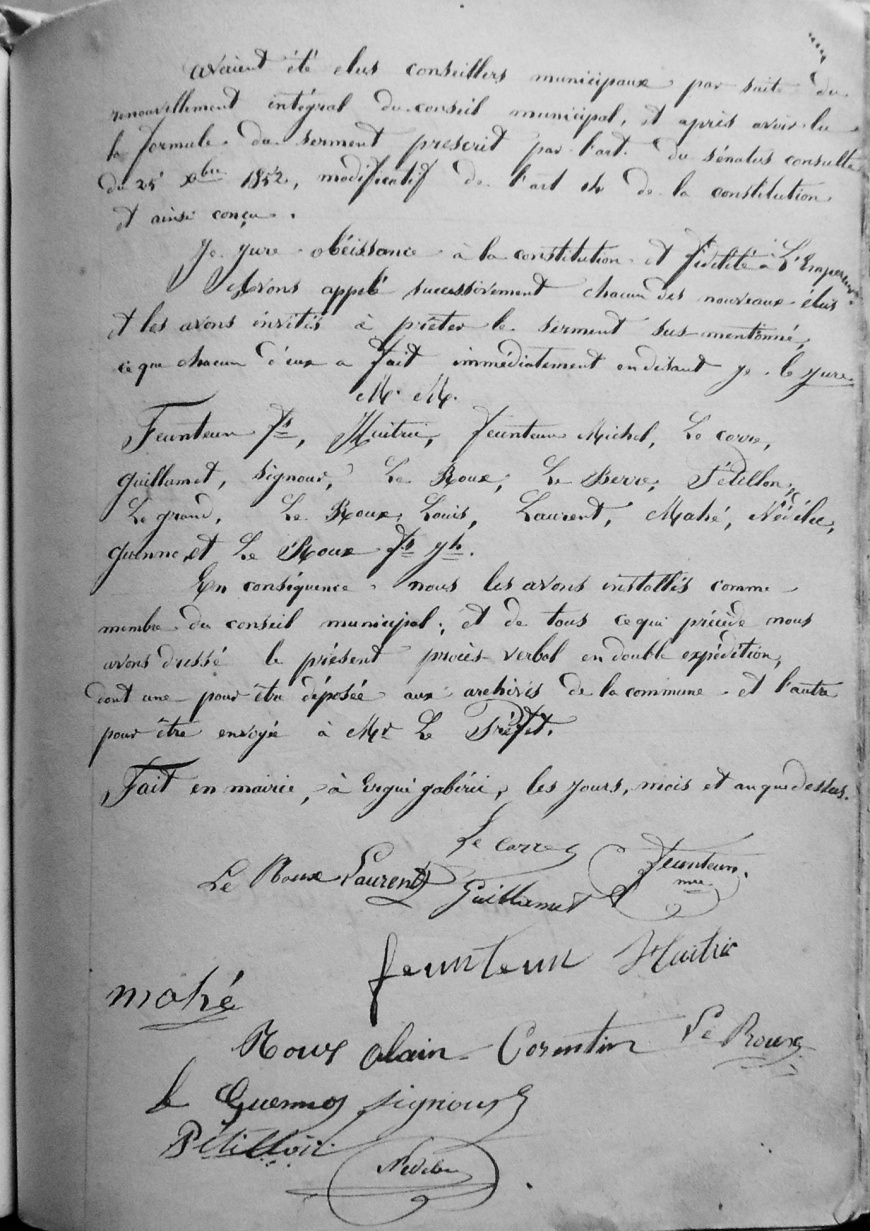 avaient été élus conseillers municipaux par suite du
renouvellement intégral du conseil municipal, et après avoir lu
la formule du serment prescrit par l'art. du sénatus consulte
du 25 Xbre 1852, modificatif de l'art 14 de la constitution
et ainsi conçu.
Je jure obéissance à la constitution et fidélité à L'Empereur.
Avons appelé successivement chacun des nouveaux élus
et les avons invités à prêter le serment sus mentionné,
ce que chacun d'eux a fait immédiatement en disant je le jure.
M. M.
Feunteun, Huitric, feunteun Michel, Le corre,
guillamet, signour, Le Roux, Le Berre, Pétillon,
Le grand, Le Roux Louis, Laurent, Mahé, Nédélec,
guenno, et Le Roux
En conséquence nous les avons installés comme
membre du conseil municipal; et de tous ce qui précède nous
avons dressé le présent procès verbal en double expédition,
dont une pour être déposée aux archives de la commune et l'autre
pour être envoyée à Mr Le Préfet.
Fait en mairie, à Ergué gabéric, les jours, mois et an que dessus.
Le Corre
Feunteun
mre
Le Roux Laurent
Guillamet
feunteun Huitric
mahé
Roux alain Corentin Le Roux
le Guenno signour
Pétillon
Nédélec